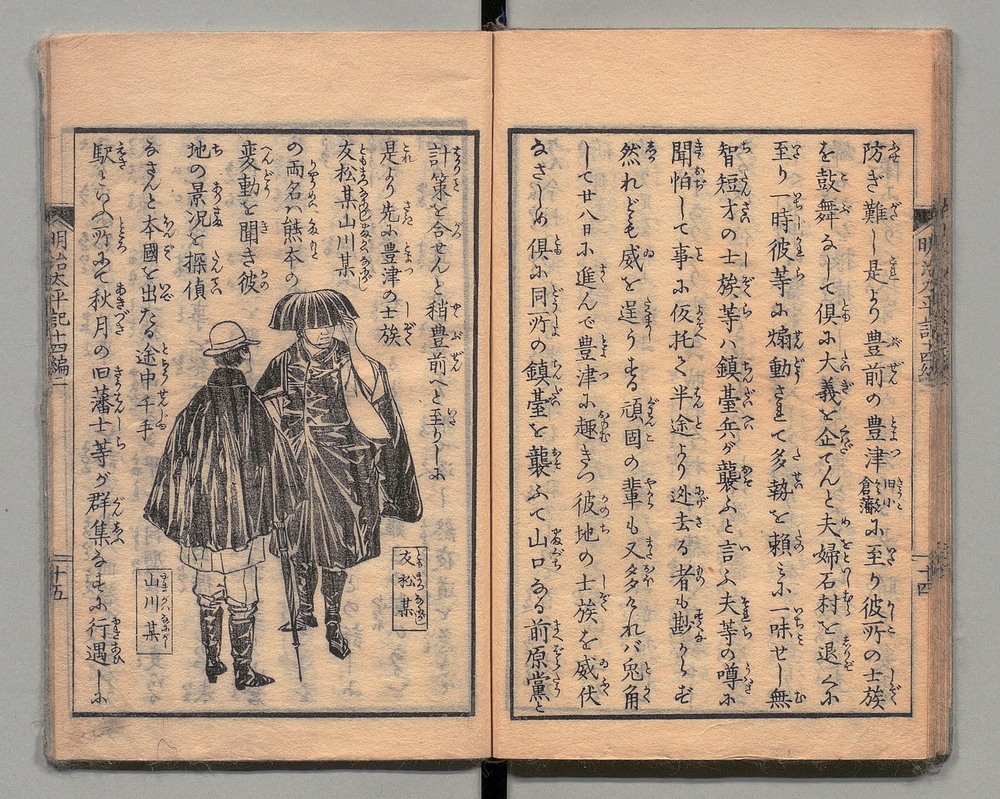 防ぎ難し是より豊前の豊津旧小倉藩に至り彼所の士族
を鼓舞なして倶に大義を企てんと夫婦石村を退くに
至り一時彼等に煽動されて多勢を頼みに一味せし無
智短才の士族等ハ鎮臺兵が襲ふと言ふ夫等の噂に
聞怕して事に仮托て半途より迯去る者も尠からず
然れども威を逞うする頑固の輩も又多けれバ兎角
して廿八日に進んで豊津に趣きつ彼地の士族を威伏
なさしめ倶に同所の鎮臺を襲ふて山口なる前原黨と
十四
計策を合せんと稍豊前へと至りしに
是より先に豊津の士族
友松某山川某
の両名ハ熊本の
変動を聞き彼
地の景况を探偵
なさんと本國を出たる途中千手
駅といへる所にて秋月の旧藩士等が群集なすに行遇しに
友松某
山川某
明治太平記十四編二
十五